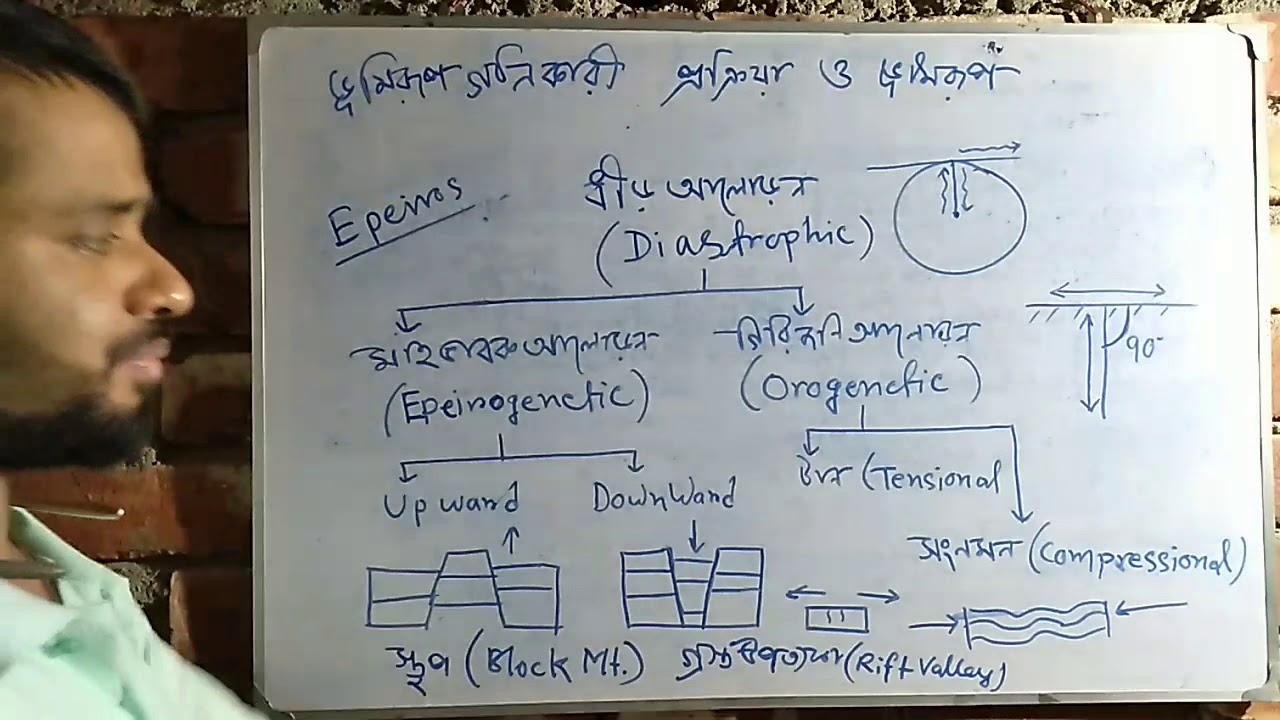 ভূমিরূপ গঠনকারী প্রক্রিয়া ও ভূমিরূপ
Epeiros
ধীর আলোড়ন
(Diastrophic)
মহিভাবক আলোড়ন
গিরিজনি আলোড়ন
(Epeirogenetic)
(Orogenetic)
90°
Upward
DownWard
টান (Tensional
সংনমন (Compressional)
স্তূপ (Block Mt.)
গ্রস্ত উপত্যকা (Rift Valley)